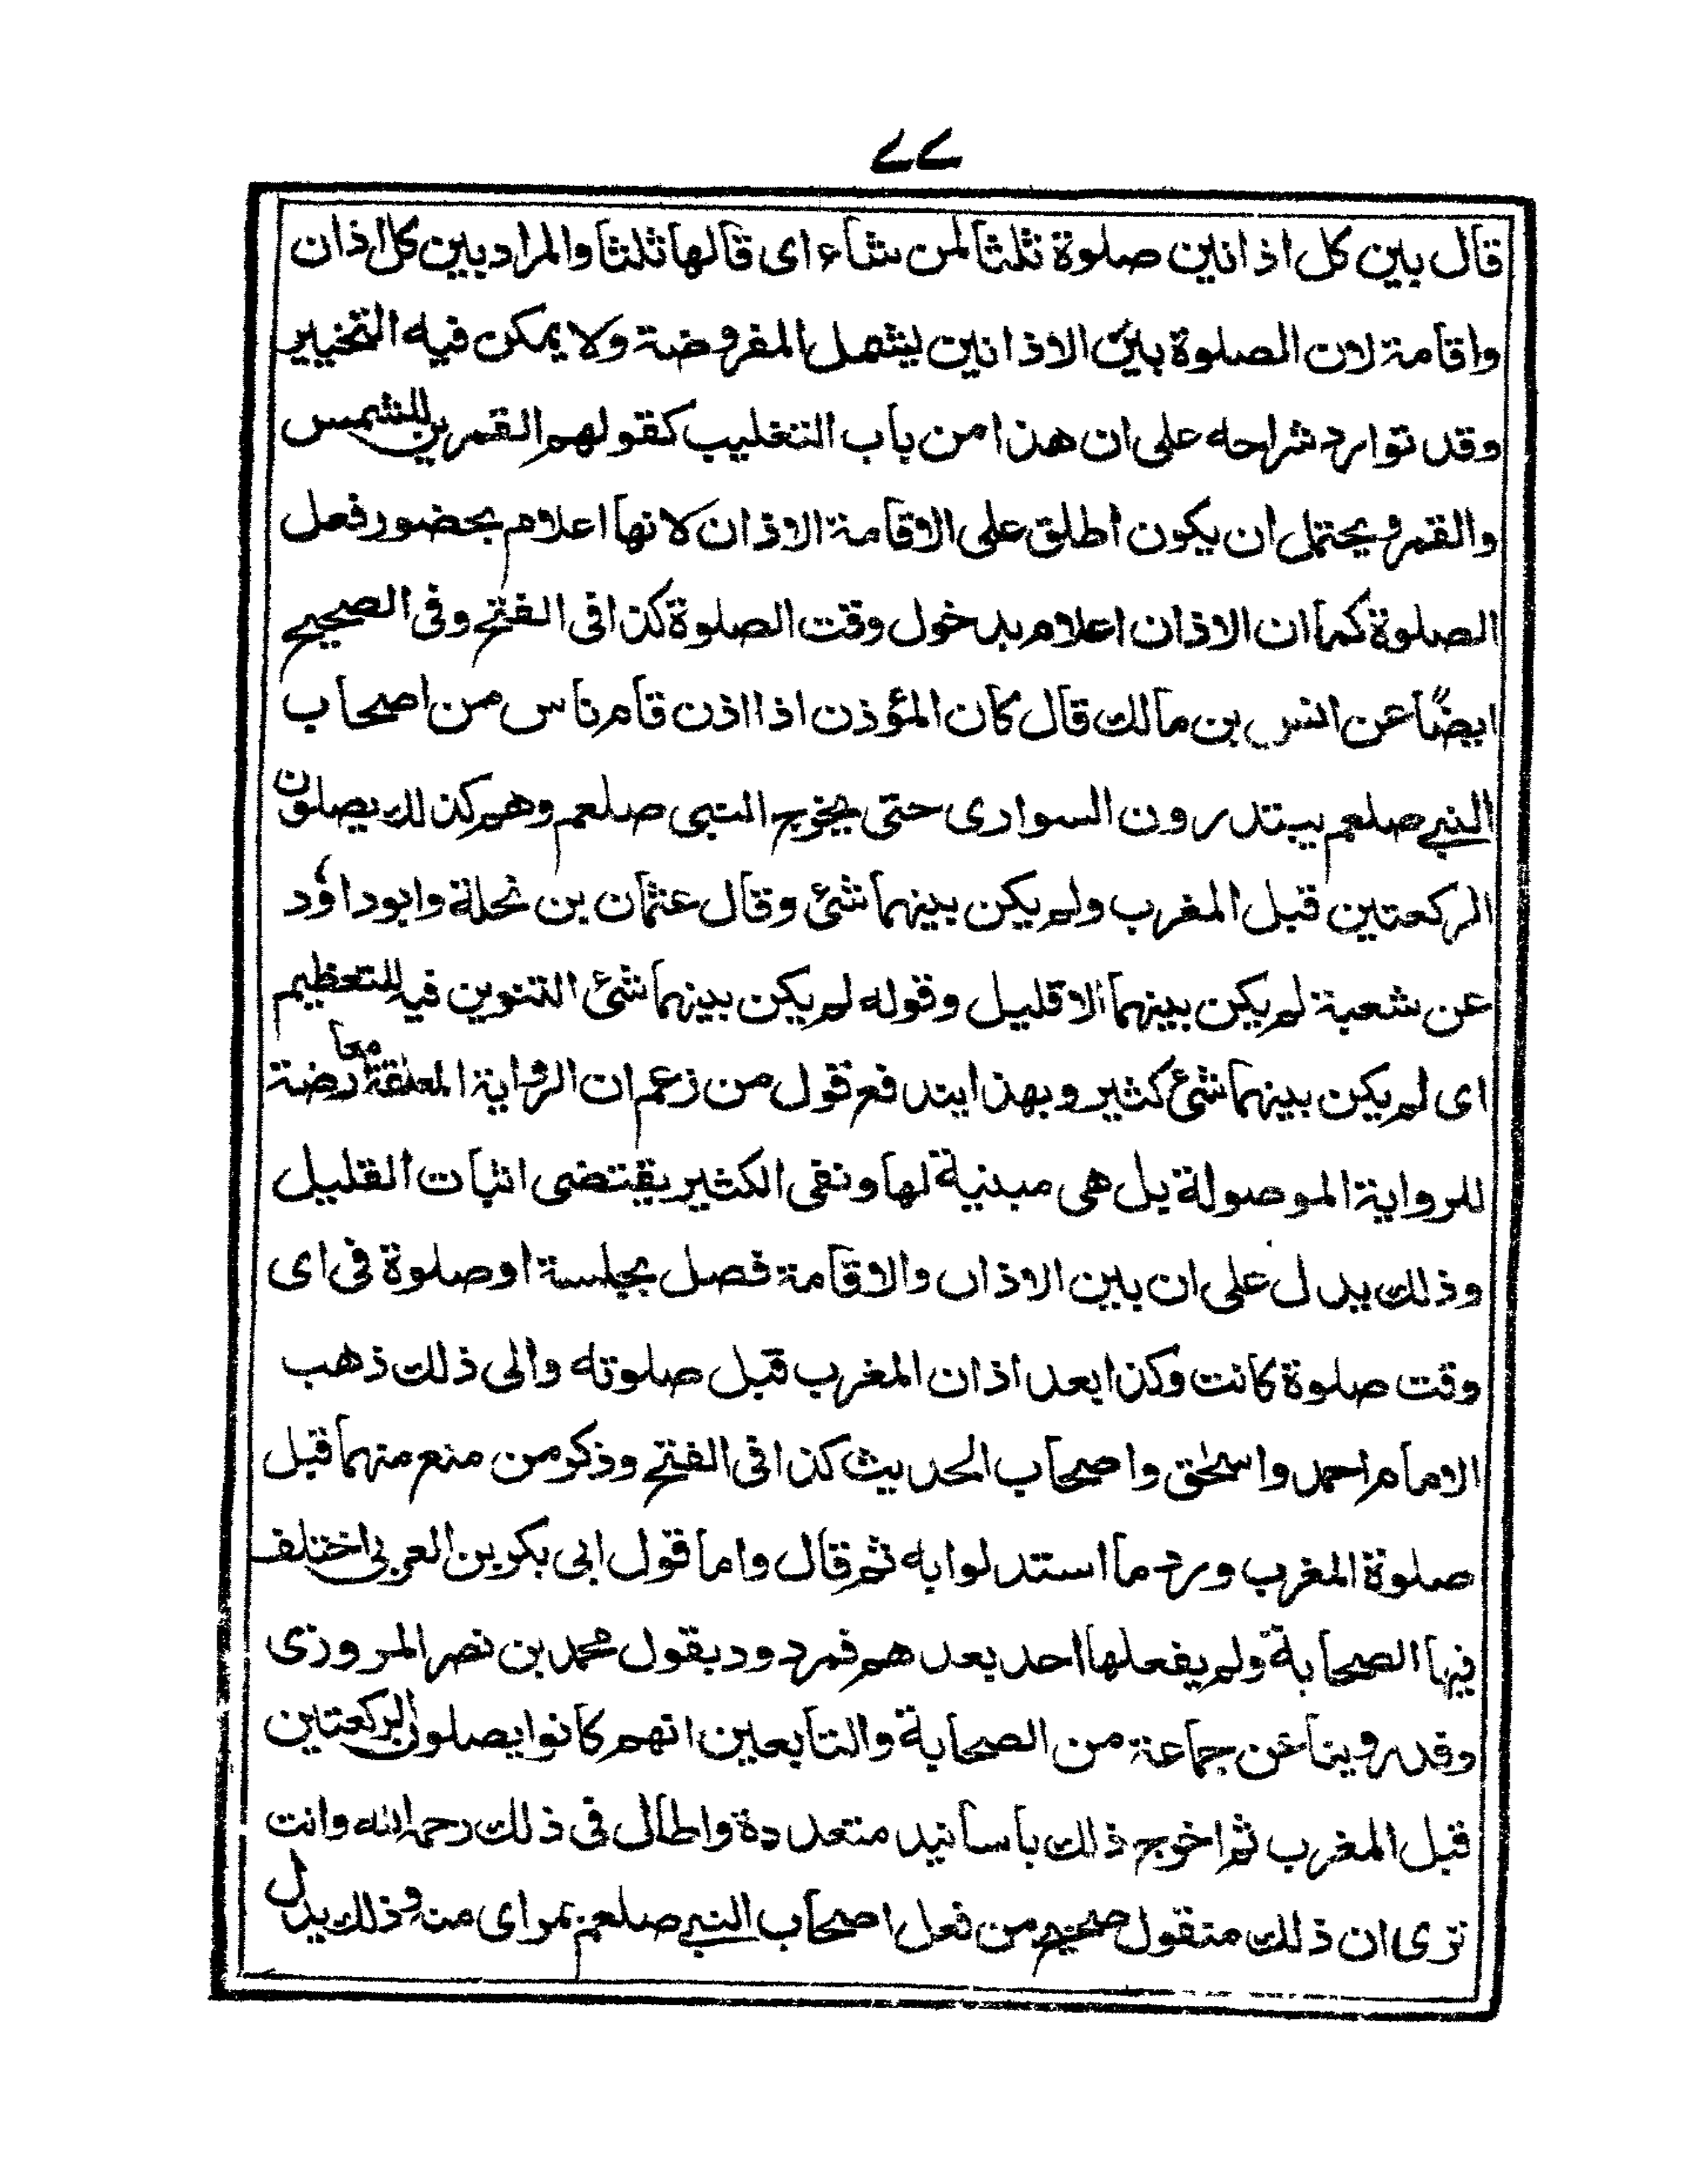 ٧٧
قال بين كل اذانين صلوة ثلثا لمن شاء اى قالها ثلثا والمراد بين كل اذان
واقامة لان الصلوة بين الاذانين يشمل المفروضة ولا يمكن فيه التخيير
وقد توارد شراحه على ان هذا من باب التغليب كقولهم القمرين للشمس
والقمر ويحتمل ان يكون اطلق على الاقامة الاذان لانها اعلام بحضور فعل
الصلوة كما ان الاذان اعلام بدخول وقت الصلوة كذا فى الفتح وفى الصحيح
ايضًا عن انس بن مالك قال كان المؤذن اذا اذن قام ناس من اصحاب
النبي صلعم يبتدرون السوارى حتى يخرج النبى صلعم وهم كذلك يصلون
الركعتين قبل المغرب ولم يكن بينهما شئ وقال عثمان بن نحلة وابو داؤد
عن شعبة لم يكن بينهما الا قليل وقوله لم يكن بينهما شئ التنوين فيه للتعظيم
اى لم يكن بينهما شئ كثير وبهذا يندفع قول من زعم ان الرواية المعلقة معارضة
للرواية الموصولة بل هى مبنية لها ونفى الكثير يقتضى اثبات القليل
وذلك يدل على ان بين الاذان والاقامة فصل بجلسة او صلوة فى اى
وقت صلوة كانت وكذا بعد اذان المغرب قبل صلوته والى ذلك ذهب
الامام احمد واسحٰق واصحاب الحديث كذا فى الفتح وذكر من منع منهما قبل
صلوة المغرب ورد ما استدلوا به ثم قال واما قول ابى بكر بن العربى اختلف
فيها الصحابة ولم يفعلها احد بعدهم فمردود بقول محمد بن نصر المروزى
وقد روينا عن جماعة من الصحابة والتابعين انهم كانوا يصلون الركعتين
قبل المغرب ثم اخرج ذلك باسانيد متعددة واطال فى ذلك رحمه الله وانت
ترى ان ذلك منقول صحيح من فعل اصحاب النبي صلعم بمراى منه وذلك يدل